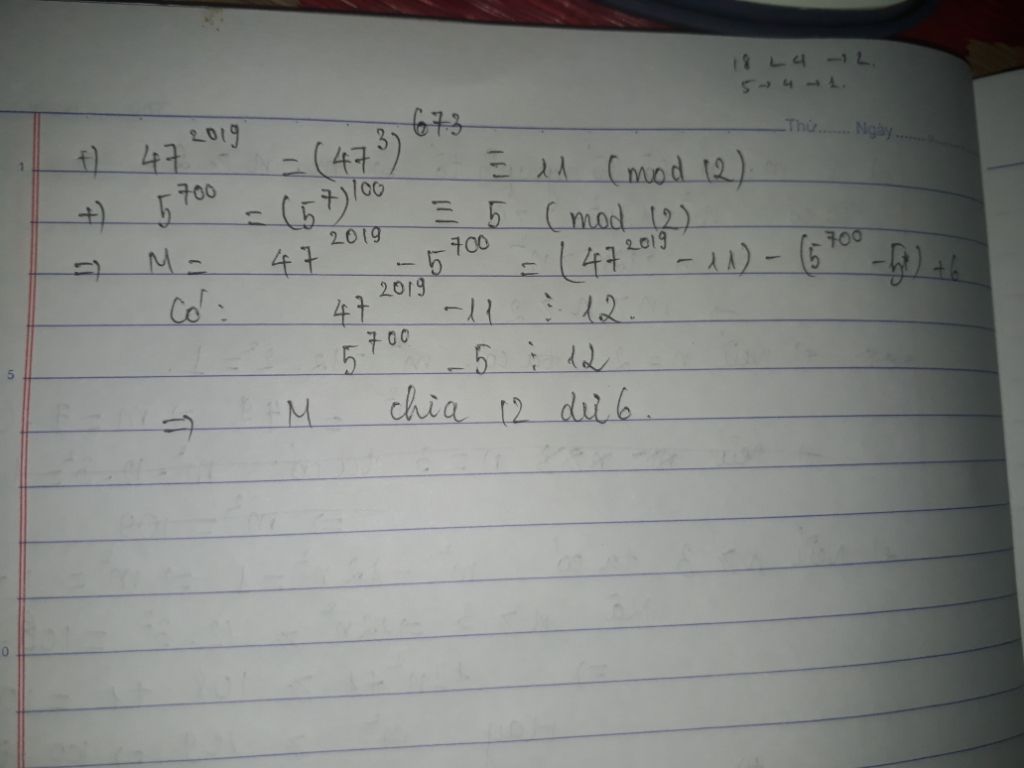 18 ∟ 4 → 2.
5 → 4 → 1.
Thứ....... Ngày.........
1
+) 47^2019 = (47^3)^673 ≡ 11 (mod 12)
+) 5^700 = (5^7)^100 ≡ 5 (mod 12)
=> M = 47^2019 - 5^700 = (47^2019 - 11) - (5^700 - 5) + 6
Có: 47^2019 - 11 ⋮ 12.
5^700 - 5 ⋮ 12
5
=> M chia 12 dư 6.
0